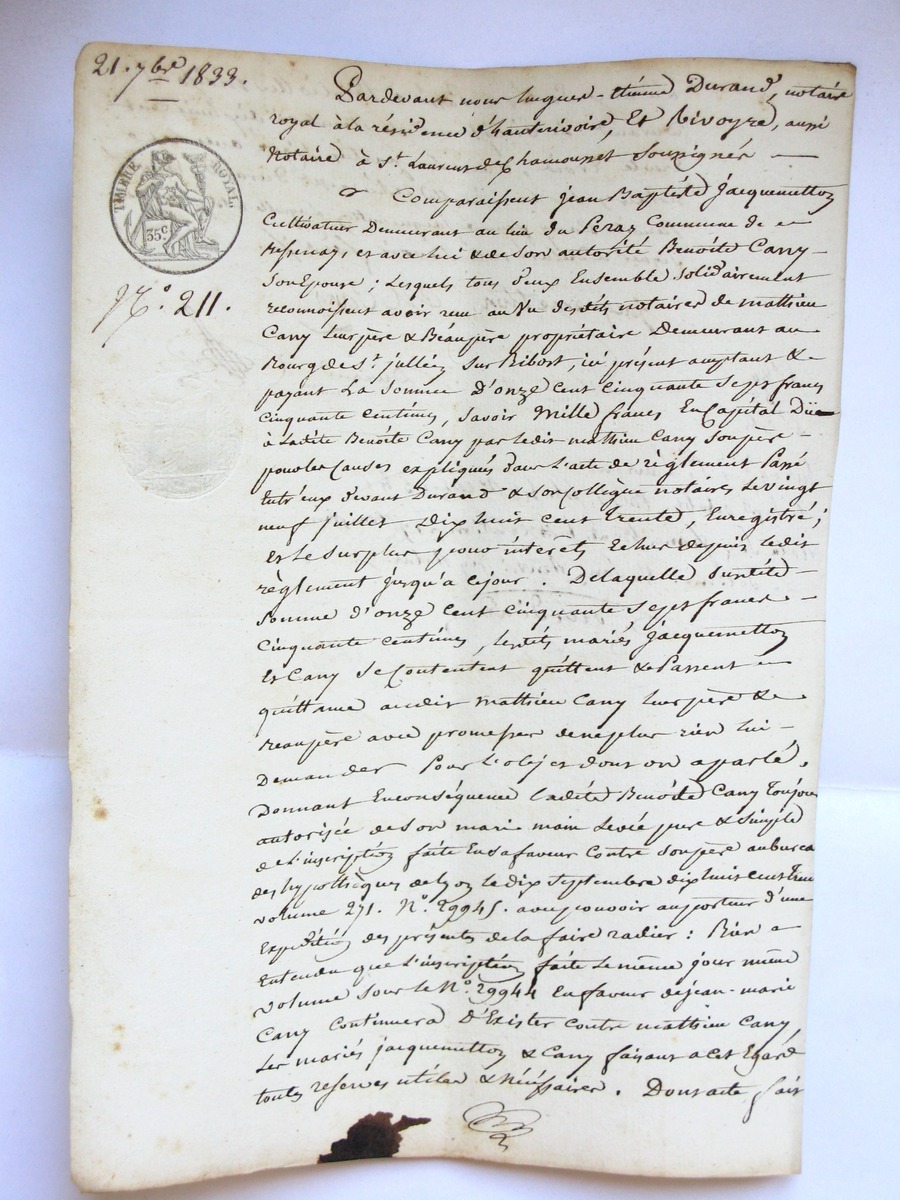 21. 7bre 1833.
Pardevant nous hugues-Etienne Durand, notaire
royal à la résidence d'hauterivoire, Et Vivoyre, aussi
Notaire à St. Laurent de Chamousset soussignés —
TIMBRE ROYAL.
35 c.
Comparaissent jean Baptiste Jacquemetton
Cultivateur Demeurant au lieu du Peray Commune de
N°. 211.
et avec lui & de son autorité Benoite Cany
son Epouse ; Lesquels tous deux Ensemble solidairement
reconnoissent avoir reçu au Vu desdits notaires de mathieu
Cany leur père & Béaupère propriétaire Demeurant au
Bourg de St. jullien sur Bibost, ici présent acceptant &
payant La somme D'onze Cent cinquante sept francs
cinquante centimes, savoir Mille francs En Capital Due
à Ladite Benoite Cany par ledit mathieu Cany son père
pour les Causes expliqués dans L'acte de règlement Passé
Entr'eux devant Durand & son Collègue notaires le vingt
neuf juillet dix huit cent trente, Enregistré ;
Et le surplus pour intérêts Echus depuis ledit
règlement jusqu'a ce jour. De laquelle susdite
somme d'onze cent cinquante sept francs
cinquante centimes, lesdits mariés Jacquemetton
et Cany se Contentent quittent & Passent
quittance audit mathieu Cany leur père &
Beaupère avec promesse de ne plus rien lui
Demander Pour L'objet dont on a parlé.
Donnant En conséquence ladite Benoite Cany Toujours
autorisée de son mari main Levée pure & simple
de L'inscription faite En sa faveur Contre son père au bureau
des hypothèques de lyon le dix septembre dix huit cent Trente
volume 271. N°. 29945. avec pouvoir au porteur d'une
Expédition des présentes de la faire radier : Bien
Entendu que L'inscription faite le même jour même
volume sous le N°. 29944 En faveur de jean-marie
Cany Continuera D'Exister contre mathieu Cany,
Les mariés jacquemetton & Cany faisant a cet Egard
toutes reserves utiles & Nécessaires. Dont acte fait